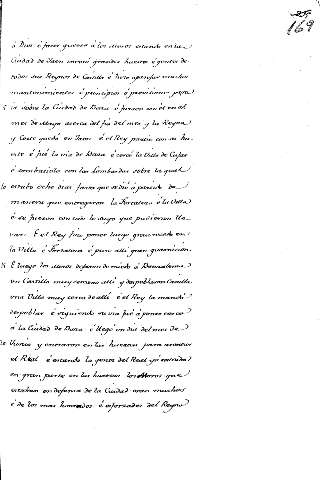 169
á Dios é facer guerra á los moros estando en la
Ciudad de Jaen mandó grandes huestes é gentes de
todos sus Reynos de Castilla é hizo aparejar muchos
mantenimientos é principios é provisiones para
5 ir sobre la Ciudad de Baza é fueron con él en el
mes de Mayo acerca del fin del mes y la Reyna
y Corte quedó en Jaen é el Rey partió con su hu-
este é fué la via de Baza é cercó la Villa de Cujar
é combatióla con las lombardas sobre la qual
10 estubo ocho dias fasta que se dió á partido de
manera que entregaron la Fortaleza é la Villa
é se fueron con todo lo suyo que pudieron lle-
var. E el Rey fizo poner luego gran recado en
la Villa é Fortaleza é puso allí gran guarnicion.
15 E luego los moros dejaron de miedo á Benzalema
un Castillo muy cercano allí y despoblaron Canilla
una Villa muy cerca de allí é el Rey la mandó
despoblar é siguiendo su via fué á poner cerco
á la Ciudad de Baza é llegó un dia del mes de
20 Junio y entraron en las huertas para asentar
el Real é estando la gente del Real ya metida
en gran parte en las huertas los Moros que
estaban en defensa de la Ciudad eran muchos
é de los mas honrados é esforzados del Reyno